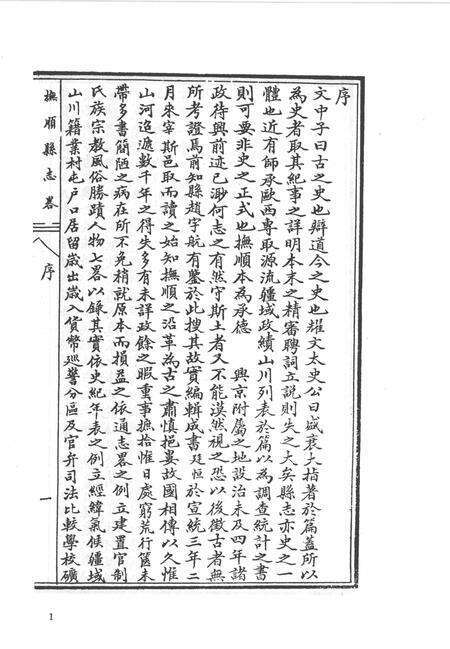 序
文中子曰古之史也辯道今之史也耀文太史公曰盛衰大指著於篇蓋所以
為史者取其紀事之詳明本末之精審聘詞立說則失之大矣縣志亦史之一
體也近有師承歐西專取源流疆域政績山川列表於篇以為調查統計之書
則可要非史之正式也撫順本為承德 興京附屬之地設治未及四年諸
政待興前迹已渺何志之有然守斯土者又不能漠然視之恐以後徵古者無
所考證焉前知縣趙宇航有鑒於此搜其故實編輯成書廷恒於宣統三年二
月來宰斯邑取而讀之始知撫順之沿革為古之肅慎挹婁故國相傳以久惟
山河迢遞數千年之得失多有未詳政餘之暇重事摭拾惟日處窮荒行篋未
帶多書簡陋之病在所不免稍就原本而損益之依通志畧之例立建置官制
氏族宗教風俗勝蹟人物七畧以錄其實依史紀年表之例立經緯氣候疆域
山川籍業村屯戶口居留歲出歲入貨幣巡警分區及官弁司法比較學校礦
撫順縣志畧
序
一
1